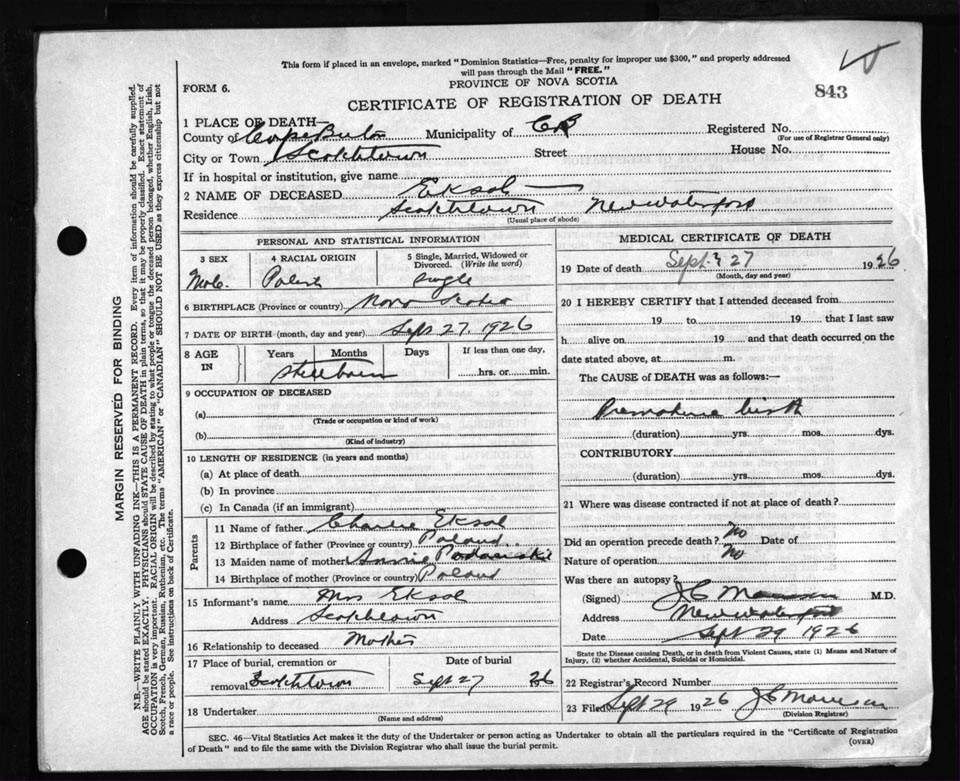 This form if placed in an envelope, marked "Dominion Statistics—Free, penalty for improper use $300," and properly addressed
will pass through the Mail "FREE."
PROVINCE OF NOVA SCOTIA
FORM 6.
843
CERTIFICATE OF REGISTRATION OF DEATH
1 PLACE OF DEATH—
County of Cape Breton Municipality of CB Registered No.
(For use of Registrar General only)
City or Town Scotchtown Street House No.
If in hospital or institution, give name
2 NAME OF DECEASED Eksal
Residence Scotchtown New Waterford
(Usual place of abode)
PERSONAL AND STATISTICAL INFORMATION
3 SEX 4 RACIAL ORIGIN 5 Single, Married, Widowed or Divorced. (Write the word)
Male Polish single
6 BIRTHPLACE (Province or country) Nova Scotia
7 DATE OF BIRTH (month, day and year) Sept 27, 1926
8 AGE IN Years Months Days If less than one day,
Stillborn hrs. or min.
9 OCCUPATION OF DECEASED
(a)
(Trade or occupation or kind of work)
(b)
(Kind of industry)
10 LENGTH OF RESIDENCE (in years and months)
(a) At place of death
(b) In province
(c) In Canada (if an immigrant)
Parents
11 Name of father Charlie Eksal
12 Birthplace of father (Province or country) Poland
13 Maiden name of mother Annie
14 Birthplace of mother (Province or country) Poland
15 Informant's name Mrs Eksal
Address Scotchtown
16 Relationship to deceased Mother
17 Place of burial, cremation or removal Scotchtown Date of burial Sept 27 1926
18 Undertaker
(Name and address)
MEDICAL CERTIFICATE OF DEATH
19 Date of death Sept 27 1926
(Month, day and year)
20 I HEREBY CERTIFY that I attended deceased from
19 to 19 that I last saw
h alive on 19 and that death occurred on the
date stated above, at m.
The CAUSE OF DEATH was as follows:—
Premature birth
(duration) yrs. mos. dys.
CONTRIBUTORY
(duration) yrs. mos. dys.
21 Where was disease contracted if not at place of death?
Did an operation precede death? No Date of
Nature of operation No
Was there an autopsy?
(Signed) J C M.D.
Address New Waterford
Date Sept 29 1926
State the Disease causing Death, or in death from Violent Causes, state (1) Means and Nature of
Injury, (2) whether Accidental, Suicidal or Homicidal.
22 Registrar's Record Number
23 Filed Sept 29 1926 J C
(Division Registrar)
SEC. 46—Vital Statistics Act makes it the duty of the Undertaker or person acting as Undertaker to obtain all the particulars required in the "Certificate of Registration
of Death" and to file the same with the Division Registrar who shall issue the burial permit.
(OVER)
MARGIN RESERVED FOR BINDING
N.B.—WRITE PLAINLY WITH UNFADING INK—THIS IS A PERMANENT RECORD. Every item of information should be carefully supplied.
AGE should be stated EXACTLY. PHYSICIANS should STATE CAUSE OF DEATH in plain terms, so that it may be properly classified. Exact statement of
OCCUPATION is very important. RACIAL ORIGIN will be described by stating to what people or tongue the deceased person belonged, whether English, Irish,
Scotch, French, German, Russian, Ruthenian, etc. The terms "AMERICAN" or "CANADIAN" SHOULD NOT BE USED as they express citizenship but not
a race or people. See instructions on back of Certificate.